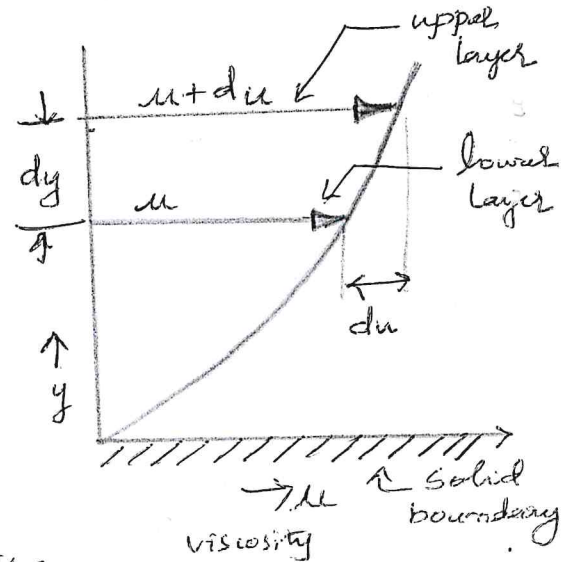 upper
layer
u + du
dy
lower
layer
u
du
y
u
solid
boundary
viscosity